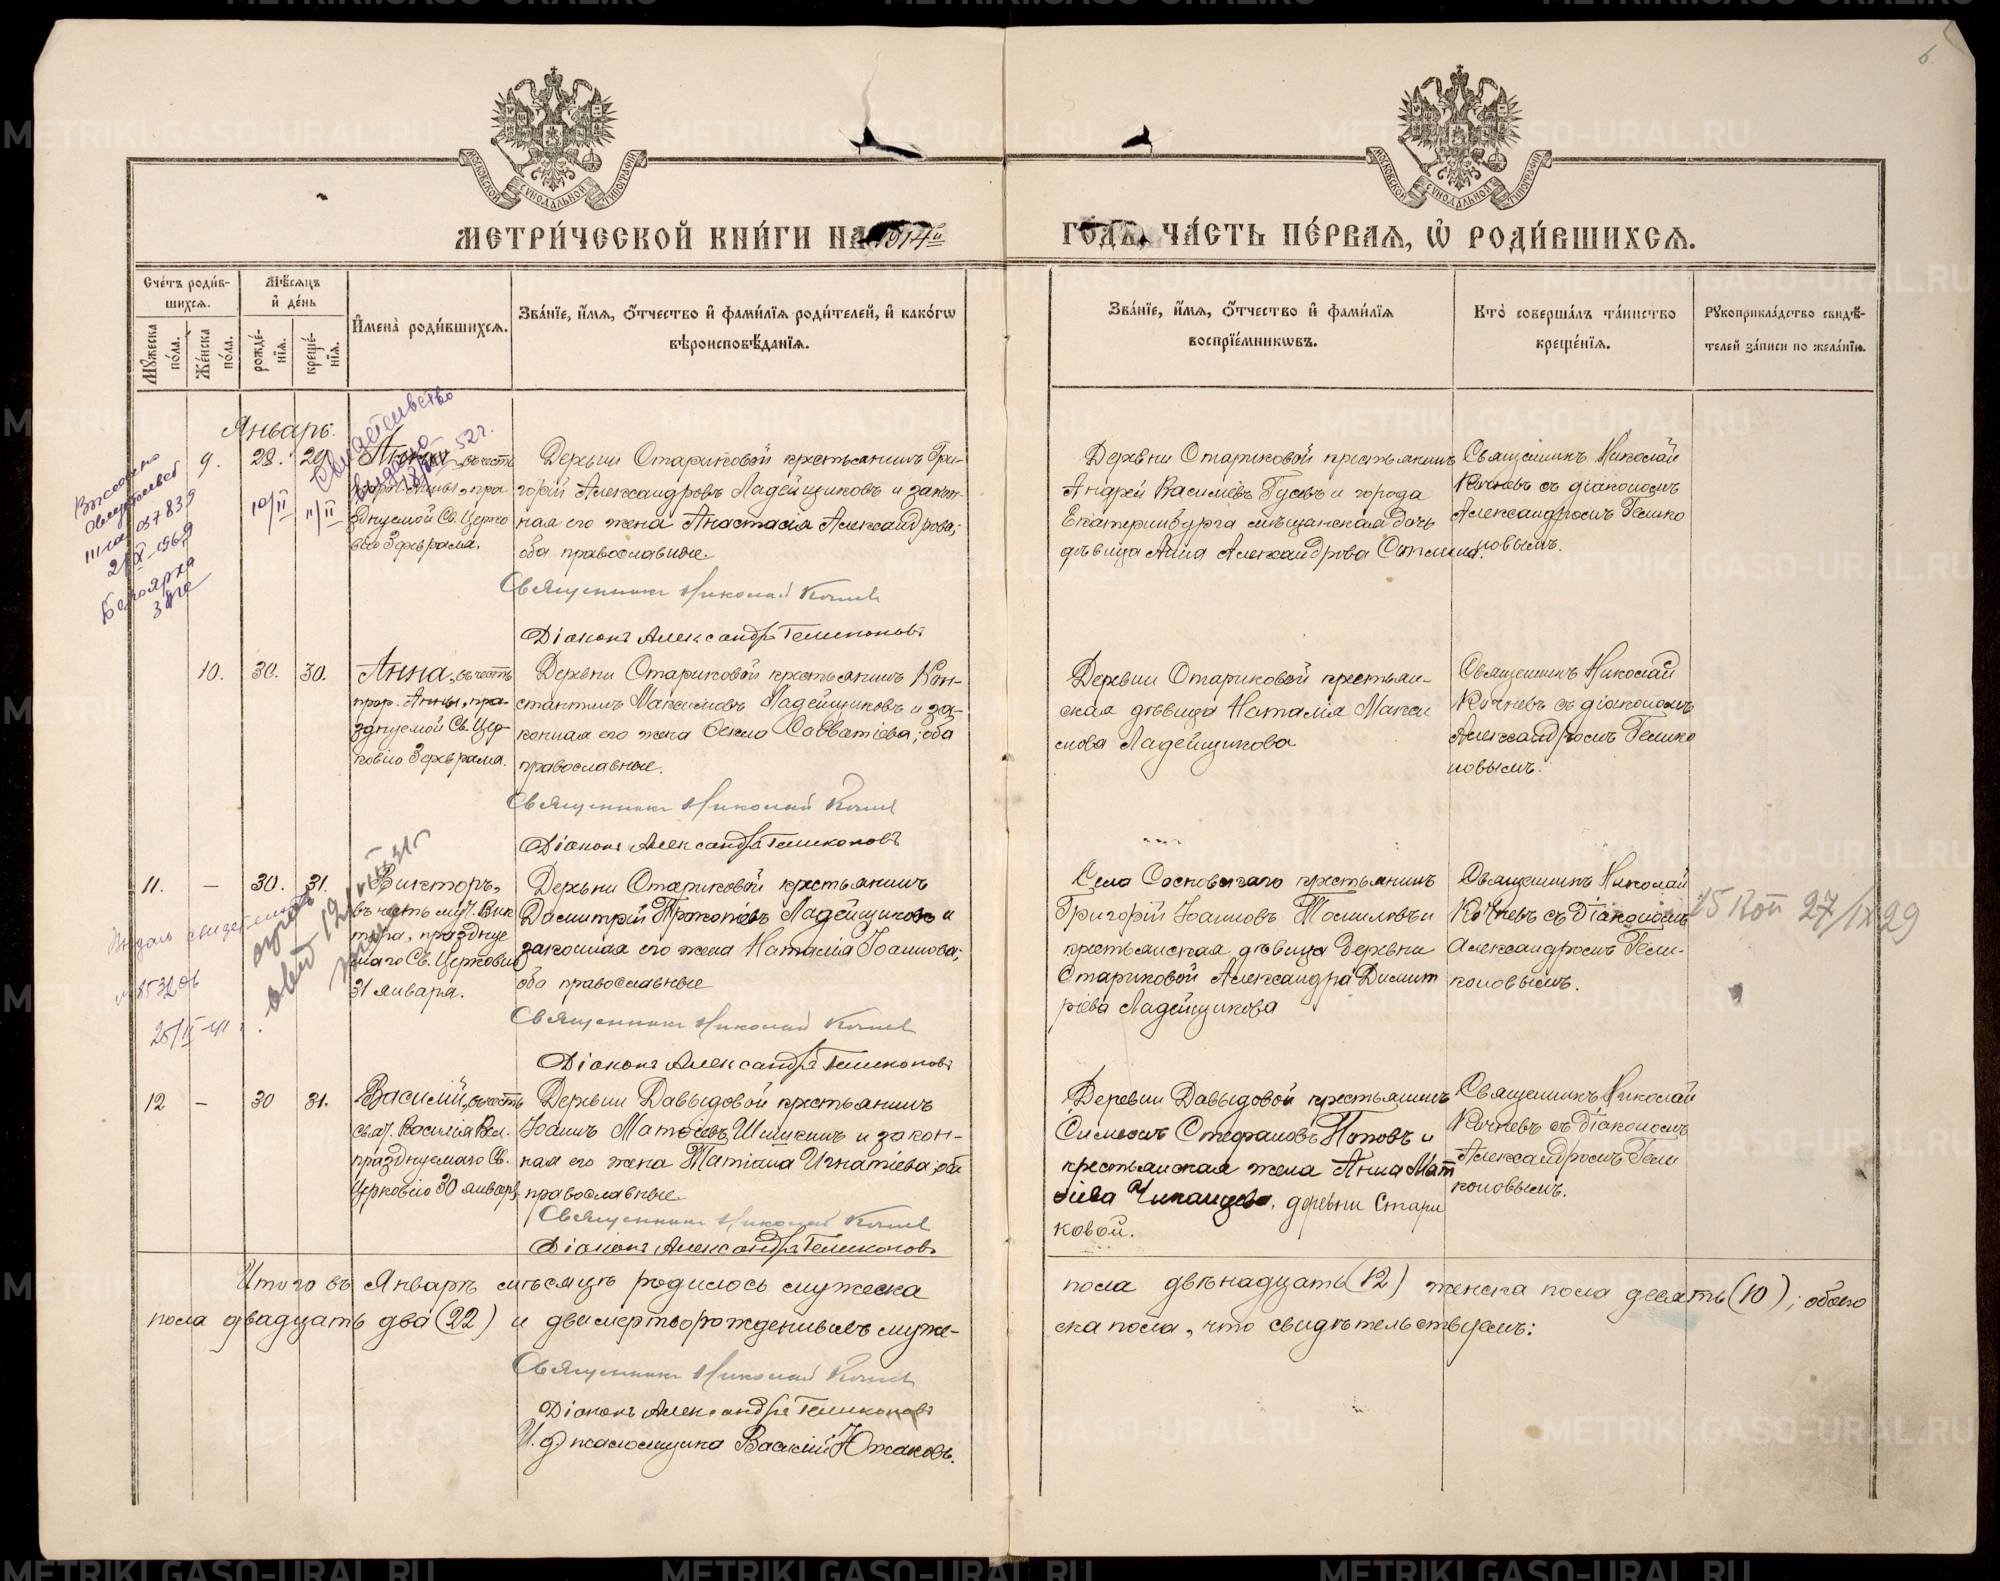 6.
МОСКОВСКОЙ СѴНОДАЛЬНОЙ ТИПОГРАФІИ
МОСКОВСКОЙ СѴНОДАЛЬНОЙ ТИПОГРАФІИ
МЕТРИ́ЧЕСКОЙ КНИ́ГИ НА 1914й
ГО́ДЪ, ЧА́СТЬ ПЕ́РВАЯ, Ѽ РОДИ́ВШИХСЯ.
Сче́тъ роди́в-
шихся.
Мѣ́сяцъ
и҆ де́нь
Мꙋ́жеска по́ла.
Же́нска по́ла.
рожде́-
нїя.
креще́-
нїя.
И҆мена̀ роди́вшихся.
Зва́нїе, и҆́мя, ѻ҆́тчество и҆ фами́лїя роди́телей, и҆ како́гѡ
вѣроисповѣ́данїя.
Зва́нїе, и҆́мя, ѻ҆́тчество и҆ фами́лїя
воспрїе́мникѡвъ.
Кто̀ соверша́лъ та́инство
креще́нїя.
Рꙋкоприкла́дство свидѣ́-
телей за́писи по жела́нїю.
Январь.
9. 28. 29.
10/II 11/II
Свидетельство
выдано
52г.
въ честь
прор. Анны, пра-
зднуемой Св. Церко
вію 3 февраля.
Деревни Стариковой крестьянинъ Гри-
горій Александровъ Ладейщиковъ и закон-
ная его жена Анастасія Александрова;
оба православные.
Священникъ Николай Кочнев
Діаконъ Александръ Геликоновъ
Деревни Стариковой крестьянинъ
Андрей Василіевъ Гусевъ и города
Екатеринбурга мѣщанская дочь
дѣвица Анна Александрова
Священникъ Николай
Кочневъ съ діакономъ
Александромъ Гелико
новымъ.
10. 30. 30.
Анна, въ честь
прор. Анны, пра-
зднуемой Св. Цер-
ковію 3 февраля.
Деревни Стариковой крестьянинъ Кон-
стантинъ Максимовъ Ладейщиковъ и за-
конная его жена Фекла Савватіева; оба
православные.
Священникъ Николай Кочнев
Діаконъ Александръ Геликоновъ
Деревни Стариковой крестьян-
ская дѣвица Наталія Макси
мова Ладейщикова
Священникъ Николай
Кочневъ съ діакономъ
Александромъ Гелико
новымъ.
11. — 30. 31.
Викторъ,
въ честь муч. Вик
тора, праздну
маго Св. Церковію
31 января.
25/II-41
Деревни Стариковой крестьянинъ
Димитрій Прокопіевъ Ладейщиковъ и
законная его жена Наталія Іоаннова;
оба православные
Священникъ Николай Кочнев
Діаконъ Александръ Геликоновъ
Села Сосновскаго крестьянинъ
Григорій Іоанновъ Томиловъ и
крестьянская дѣвица деревни
Стариковой Александра Димит
ріева Ладейщикова
Священникъ Николай
Кочневъ съ діакономъ
Александромъ Гели-
коновымъ.
15 коп 27/IX 29
12 — 30 31.
Василій, въ честь
свят. Василія Вел.
празднуемаго Св.
Церковію 30 января
Деревни Давыдовой крестьянинъ
Іоаннъ Матѳіевъ Шишкинъ и закон-
ная его жена Татіана Игнатіева, оба
православные.
Священникъ Николай Кочнев
Діаконъ Александръ Геликоновъ
Деревни Давыдовой крестьянинъ
Симеонъ Стефановъ Поповъ и
крестьянская жена Анна Мат
ѳіева деревни Стари
ковой.
Священникъ Николай
Кочневъ съ діакономъ
Александромъ Гели
коновымъ.
Итого въ Январѣ мѣсяцѣ родилось мужеска
пола двѣнадцать (12) женска пола десять (10); обоего
пола двадцать два (22) и двѣ мертворожденныхъ муже-
ска пола, что свидѣтельствуемъ:
Священникъ Николай Кочнев
Діаконъ Александръ Геликоновъ
И. д. псаломщика Василій Южаковъ.
METRIKI.GASO-URAL.RU